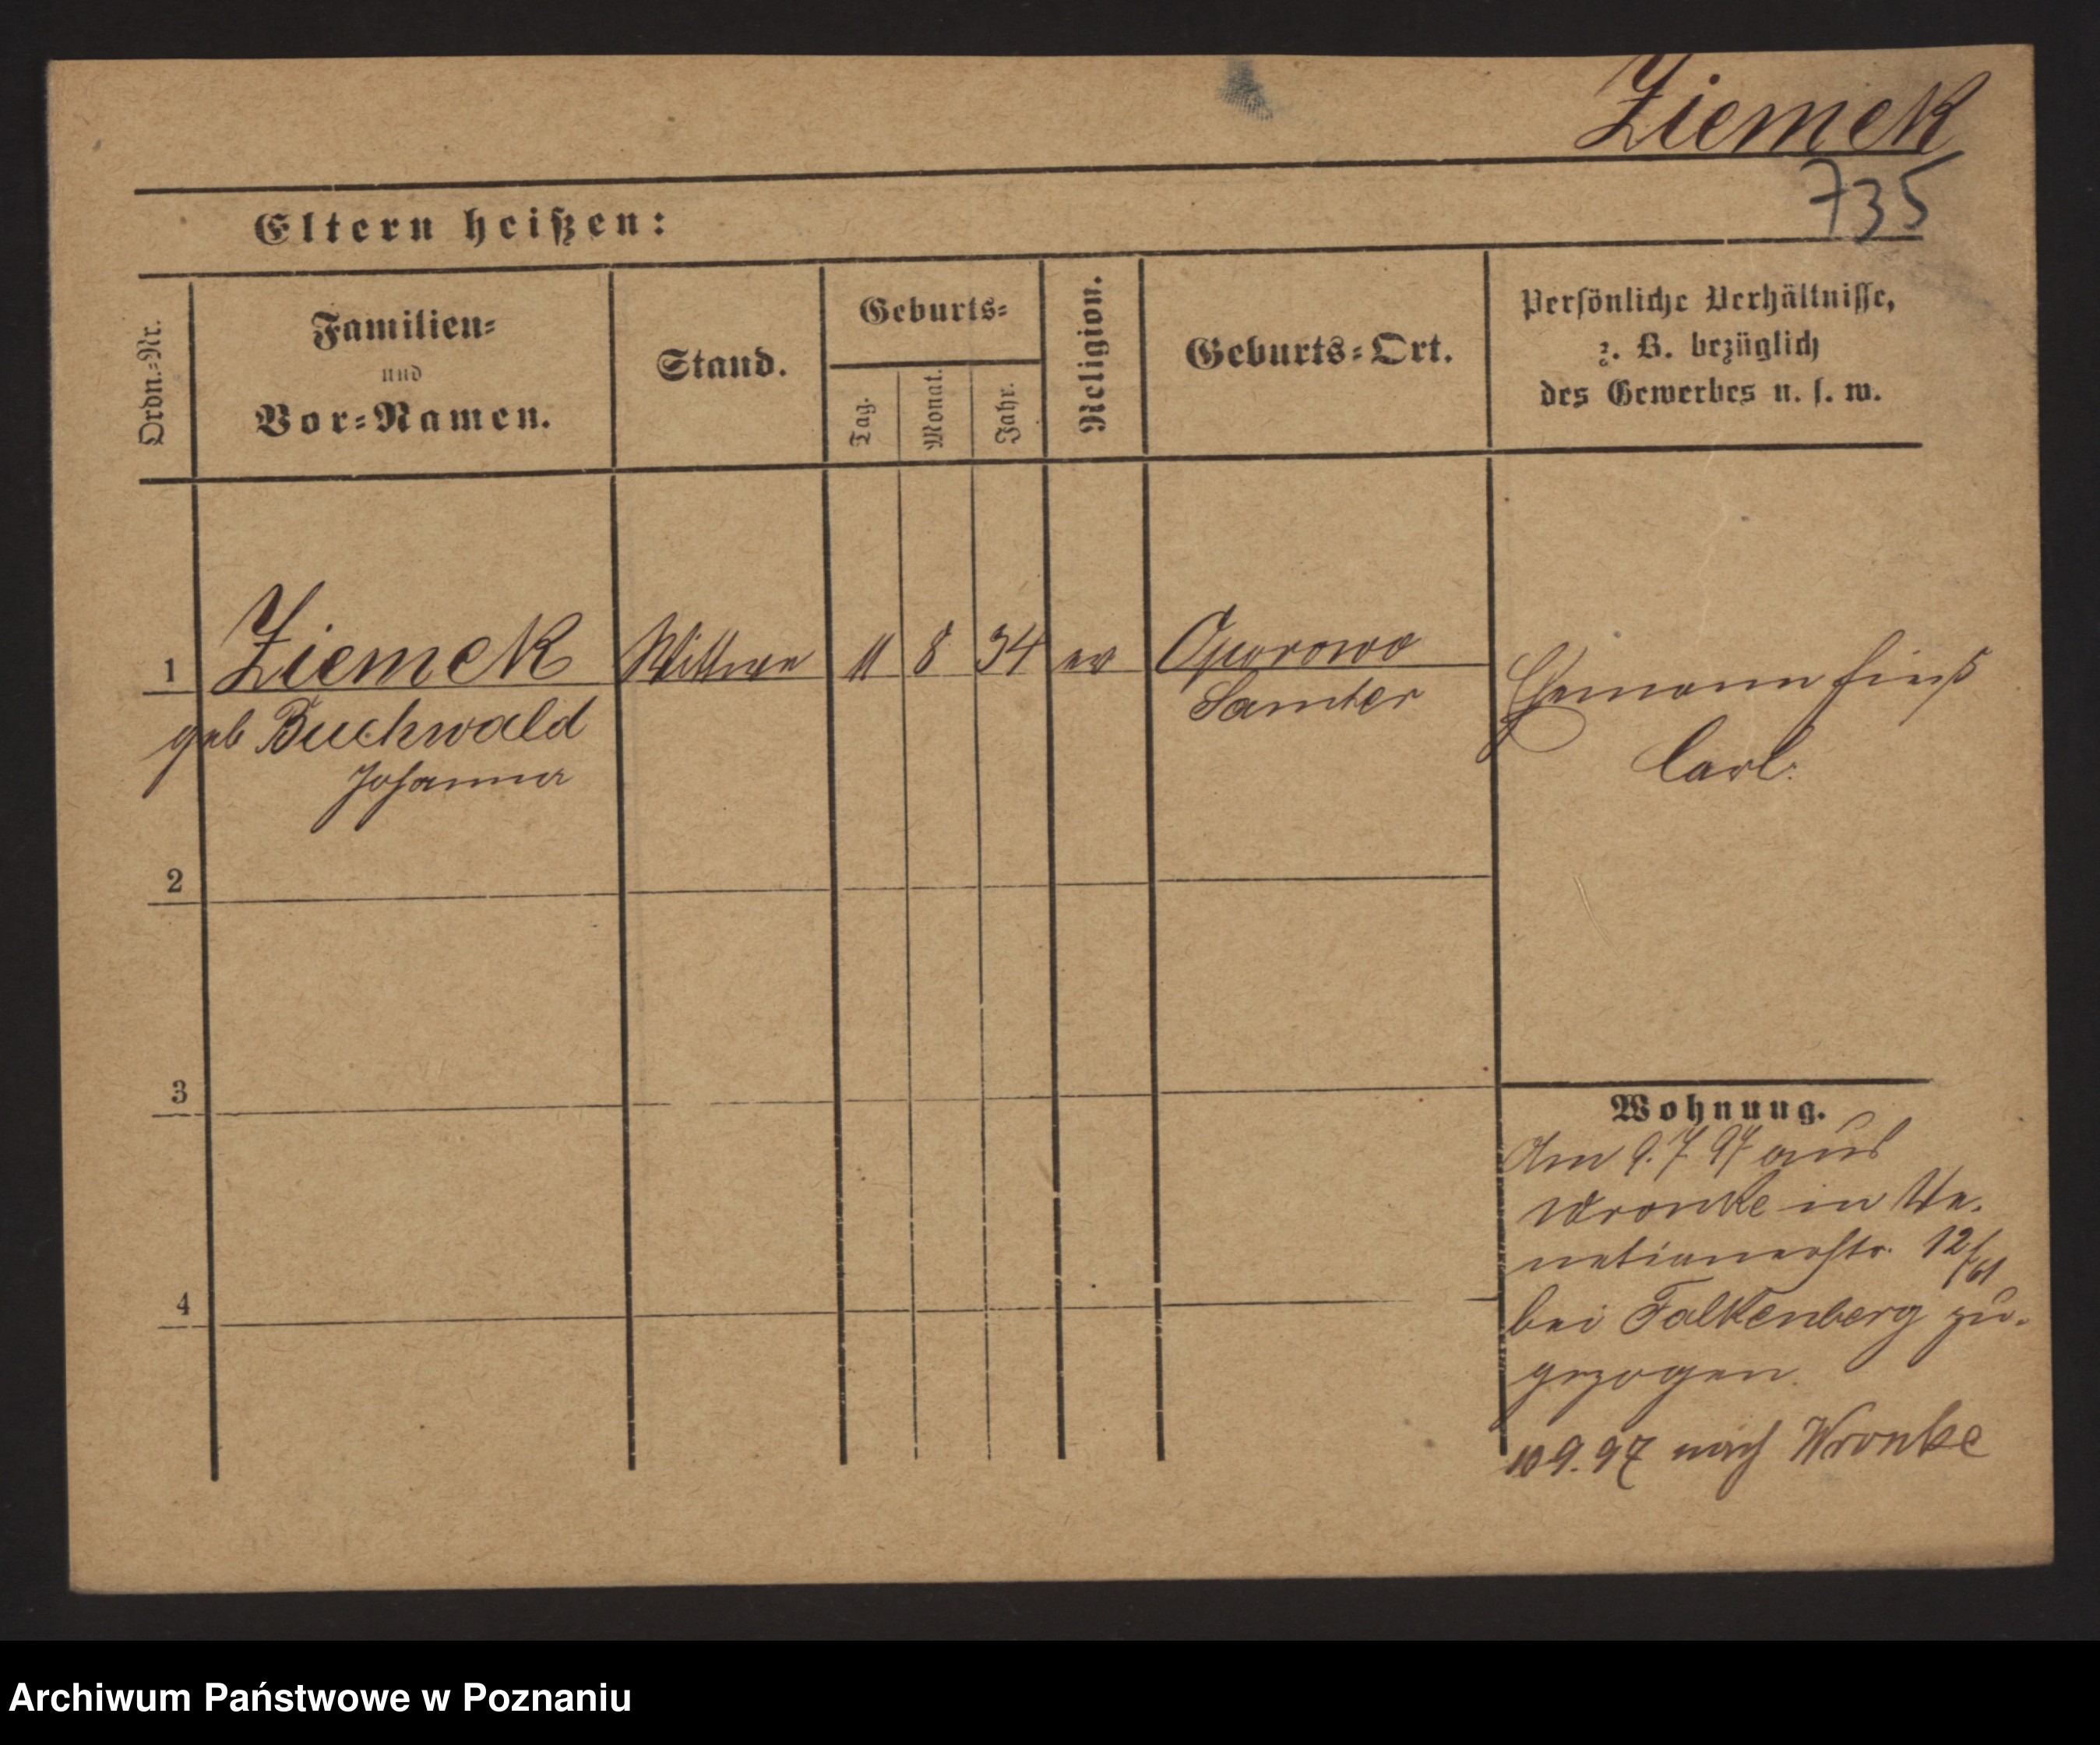 Ziemek
735
Eltern heißen:
Ordn.-Nr.
Familien-
und
Vor-Namen.
Stand.
Geburts-
Tag.
Monat.
Jahr.
Religion.
Geburts-Ort.
Persönliche Verhältnisse,
z. B. bezüglich
des Gewerbes u. s. w.
1 Ziemek Wittwe 11 8 34 ev Oporowo
geb Buchwald Samter
Johanna
Ehemann hieß
Carl.
2
3
4
Wohnung.
Am 9.7.97 aus
Wronke in Ve-
netianerstr. 12/61
bei Falkenberg zu-
gezogen.
10 9.97 nach Wronke
Archiwum Państwowe w Poznaniu